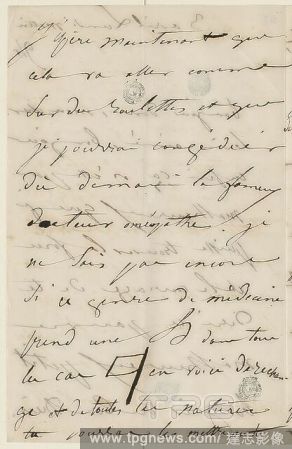 j'espère maintenant que
cela va aller comme
sur des roulettes et que
je pourrai congédier
dès demain le fameux
docteur oméopathe. je
ne sais pas encore
si ce genre de médecine
prend une H dans tous
les cas H en voici de rechange
et de toutes les natures
tu pourras les mettre
www.tpgnews.com/達志影像